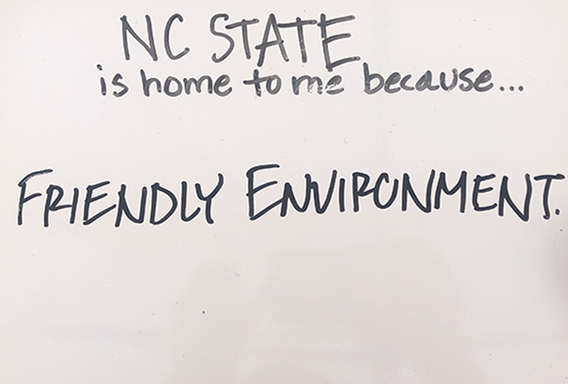 NC STATE
is home to me because...
FRIENDLY ENVIRONMENT.